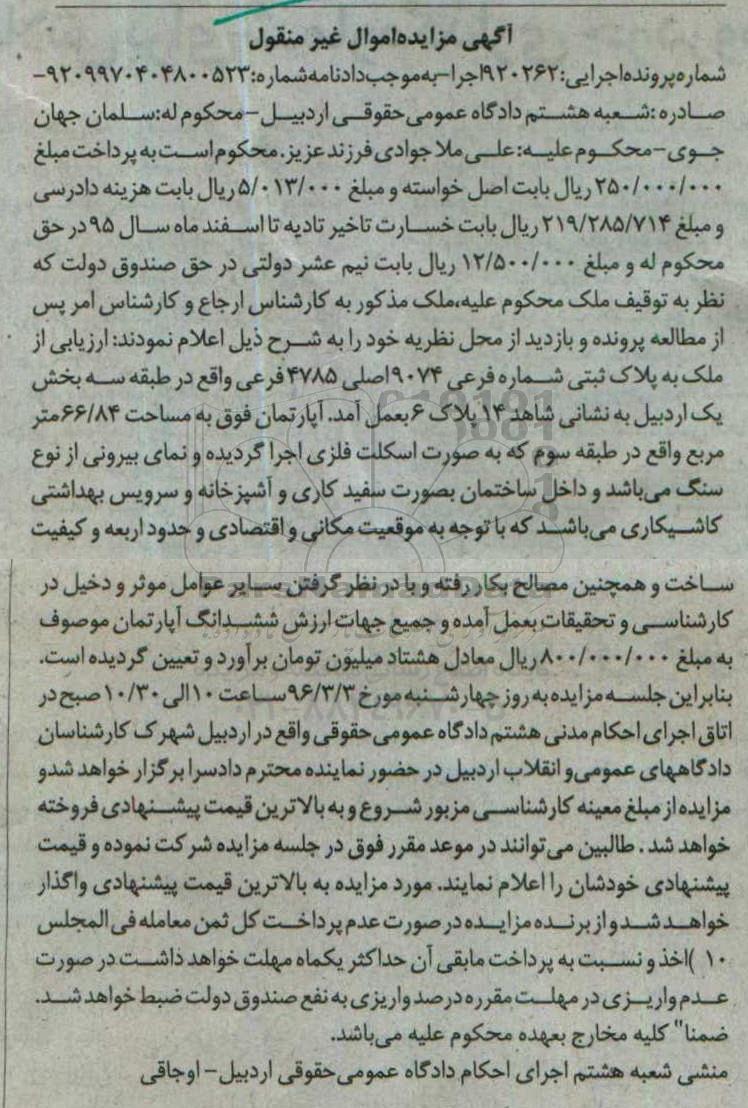 آگهی مزایده‌اموال غیر منقول
شماره‌پرونده‌اجرایی:۹۲۰۲۶۲اجرا-به‌موجب‌دادنامه‌شماره:۹۲۰۹۹۷۰۴۰۴۸۰۰۵۲۳-
صادره :شعبه هشتم دادگاه عمومی حقوقی اردبیل-محکوم له:سلمان جهان
جوی-محکوم علیه:علی ملا جوادی فرزند عزیز.محکوم است به پرداخت مبلغ
۲۵۰/۰۰۰/۰۰۰ ریال بابت اصل خواسته و مبلغ ۵/۰۱۳/۰۰۰ ریال بابت هزینه دادرسی
و مبلغ ۲۱۹/۲۸۵/۷۱۴ ریال بابت خسارت تاخیر تادیه تا اسفند ماه سال ۹۵ در حق
محکوم له و مبلغ ۱۲/۵۰۰/۰۰۰ ریال بابت نیم عشر دولتی در حق صندوق دولت که
نظر به توقیف ملک محکوم علیه،ملک مذکور به کارشناس ارجاع و کارشناس امر پس
از مطالعه پرونده و بازدید از محل نظریه خود را به شرح ذیل اعلام نمودند: ارزیابی از
ملک به پلاک ثبتی شماره فرعی ۹۰۷۴اصلی ۴۷۸۵فرعی واقع در طبقه سه بخش
یک اردبیل به نشانی شاهد ۱۴ پلاک ۶بعمل آمد. آپارتمان فوق به مساحت ۶۶/۸۴متر
مربع واقع در طبقه سوم که به صورت اسکلت فلزی اجرا گردیده و نمای بیرونی از نوع
سنگ می‌باشد و داخل ساختمان بصورت سفید کاری و آشپزخانه و سرویس بهداشتی
کاشیکاری می‌باشد که با توجه به موقعیت مکانی و اقتصادی و حدود اربعه و کیفیت
ساخت و همچنین مصالح بکار رفته و با در نظر گرفتن سایر عوامل موثر و دخیل در
کارشناسی و تحقیقات بعمل آمده و جمیع جهات ارزش ششدانگ آپارتمان موصوف
به مبلغ ۸۰۰/۰۰۰/۰۰۰ ریال معادل هشتاد میلیون تومان برآورد و تعیین گردیده است.
بنابراین جلسه مزایده به روز چهارشنبه مورخ ۹۶/۳/۳ ساعت ۱۰الی ۱۰/۳۰ صبح در
اتاق اجرای احکام مدنی هشتم دادگاه عمومی حقوقی واقع در اردبیل شهرک کارشناسان
دادگاههای عمومی‌و انقلاب اردبیل در حضور نماینده محترم دادسرا برگزار خواهد شدو
مزایده از مبلغ معینه کارشناسی مزبور شروع و به بالاترین قیمت پیشنهادی فروخته
خواهد شد . طالبین می‌توانند در موعد مقرر فوق در جلسه مزایده شرکت نموده و قیمت
پیشنهادی خودشان را اعلام نمایند. مورد مزایده به بالاترین قیمت پیشنهادی واگذار
خواهد شد و از برنده مزایده در صورت عدم پرداخت کل ثمن معامله فی المجلس
۱۰ )اخذ و نسبت به پرداخت مابقی آن حداکثر یکماه مهلت خواهد داشت در صورت
عدم واریزی در مهلت مقرره درصد واریزی به نفع صندوق دولت ضبط خواهد شد.
ضمنا" کلیه مخارج بعهده محکوم علیه می‌باشد.
منشی شعبه هشتم اجرای احکام دادگاه عمومی حقوقی اردبیل- اوجاقی